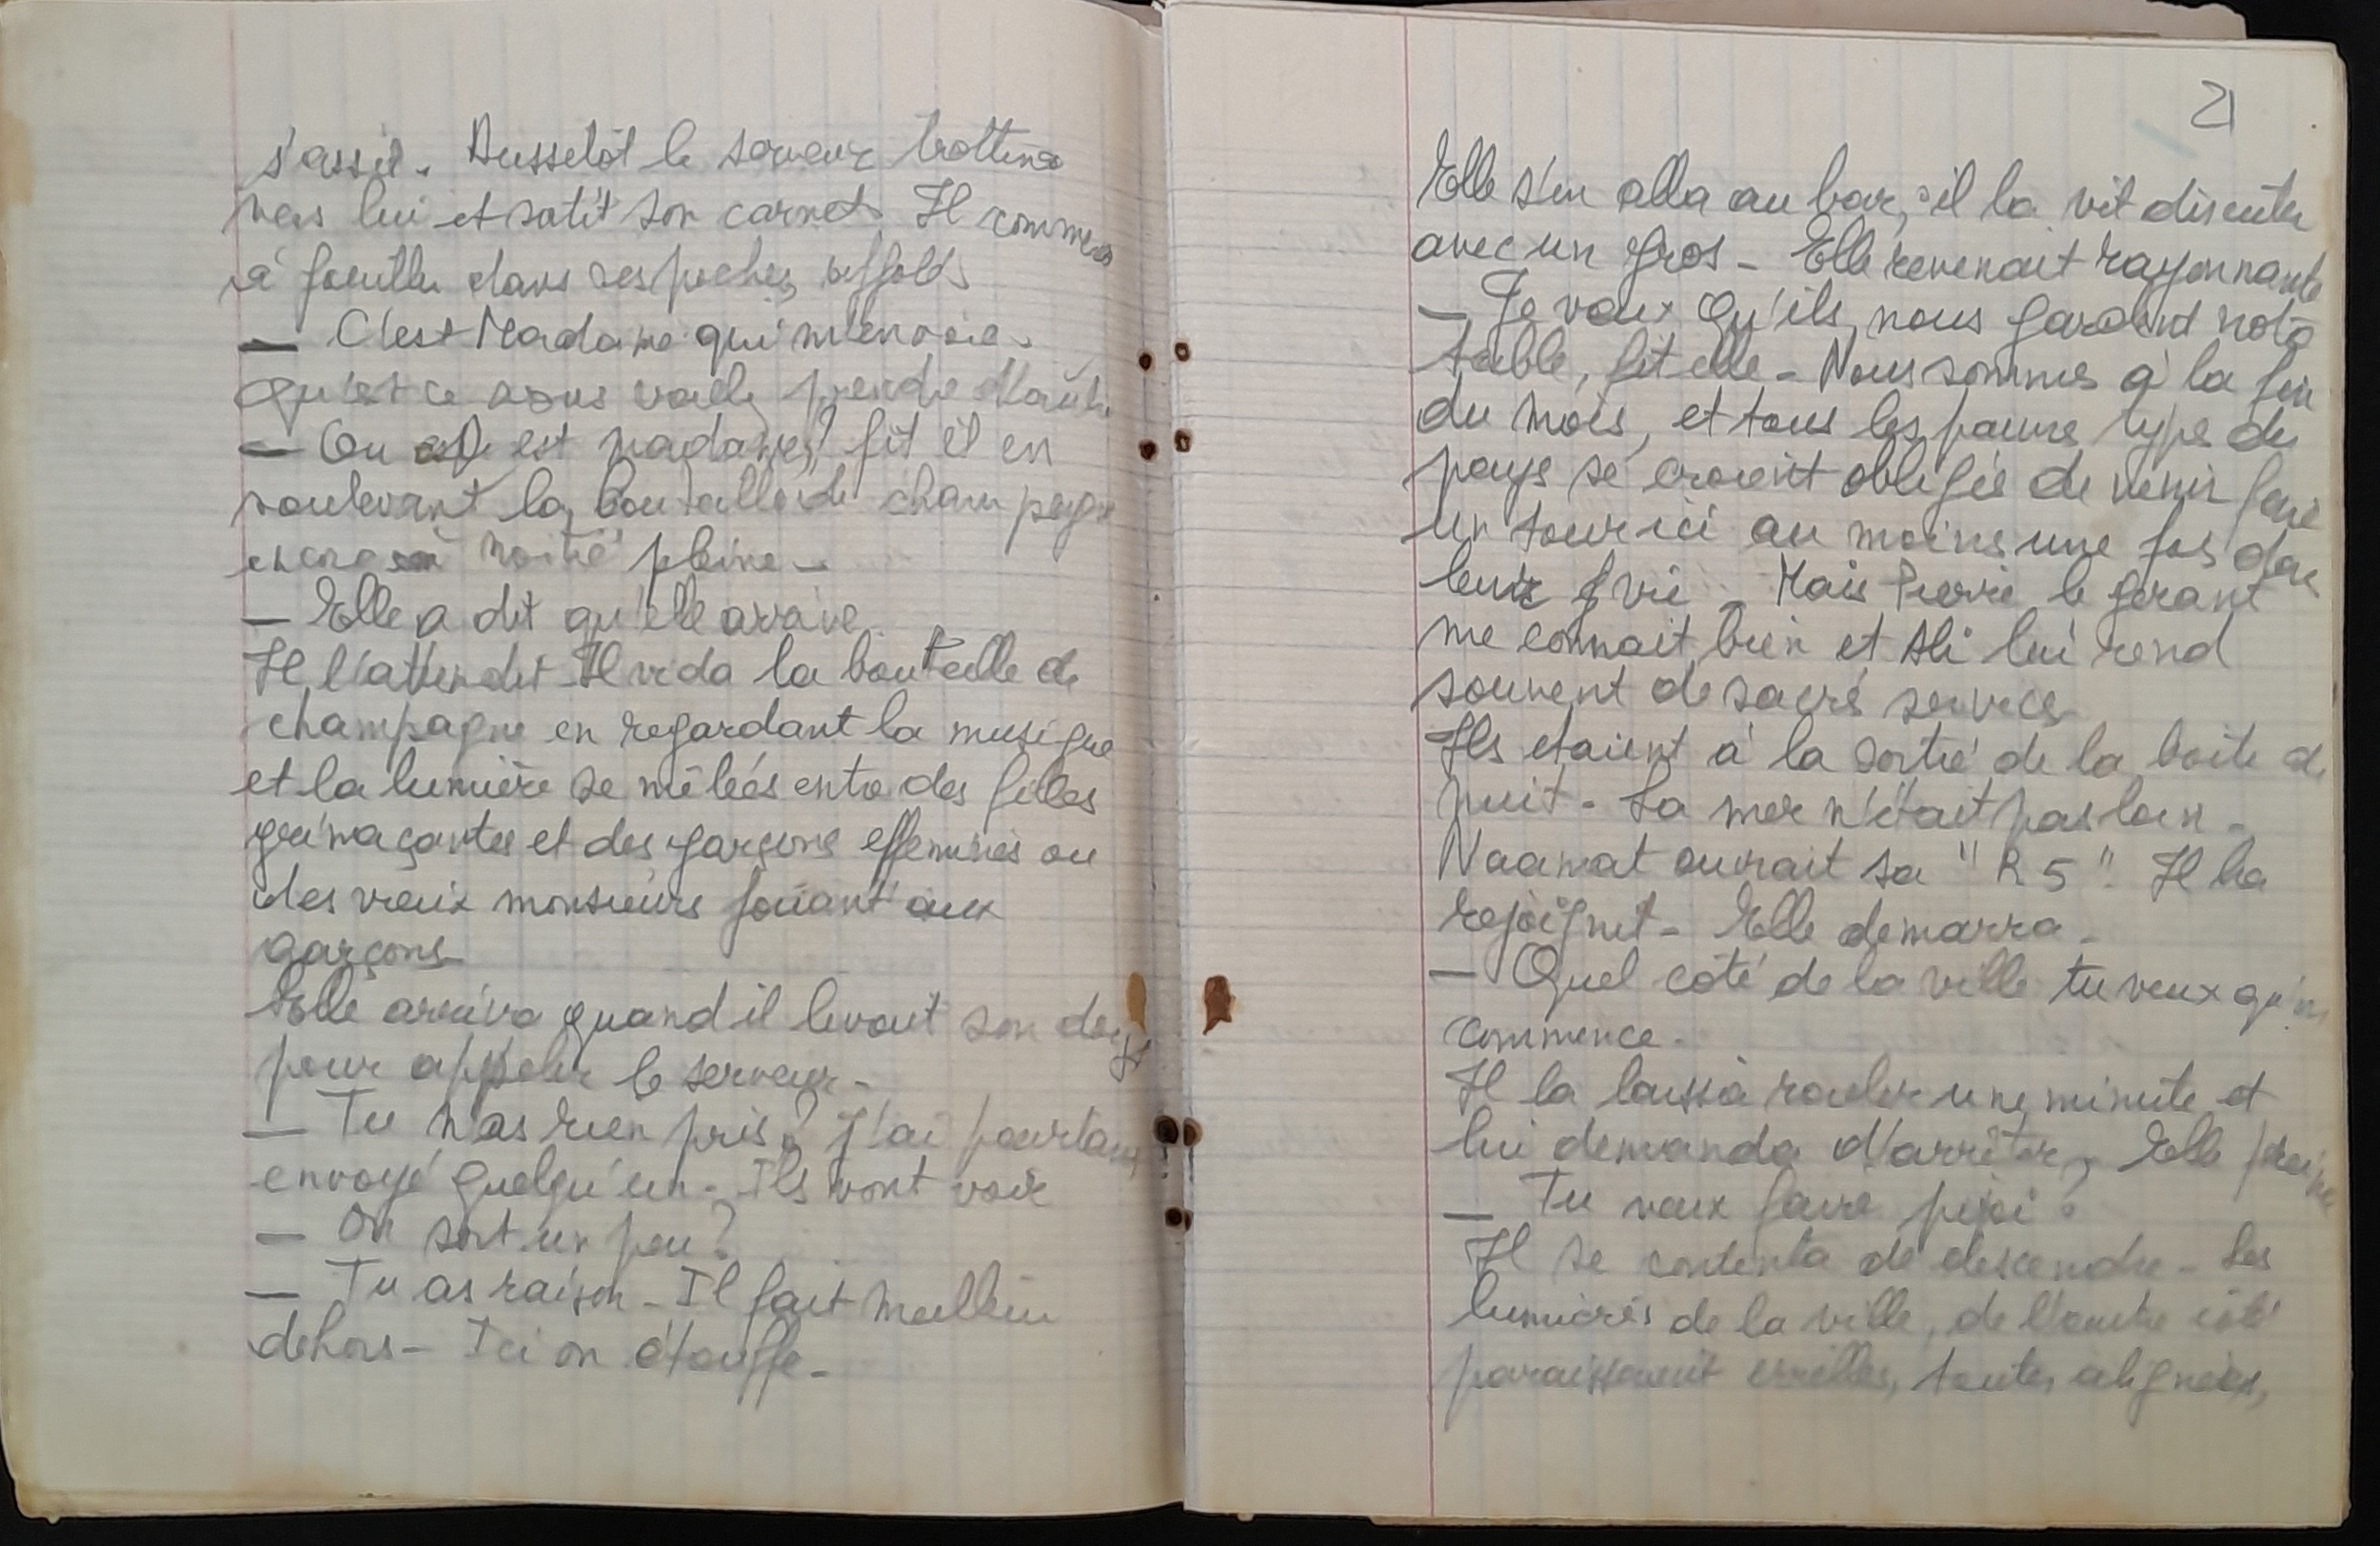 s'assit. Aussetôt le serveur trottina
vers lui et sotit son carnet. Il commen
à fouiller dans ses poches, affolé
— C'est Madame qui m'envoie.
Qu'est ce vous voulez prendre d'autre
— Ou est madame? fit il en
soulevant la bouteille de champagne
encore à moitié pleine –
— Elle a dit qu'elle arrive
Il l'attendit. Il vida la bouteille de
champagne en regardant la musique
et la lumière se mêleés entre des filles
grimaçantes et des garçons effeminés ou
des vieux monsieurs jouant aux
garçons
Elle arriva quand il levait son doigt
pour appeler le serveur –
— Tu n'as rien pris? J'ai pourtant
envoyé quelqu'un – Ils vont voir
— On sort un peu?
— Tu as raison – Il fait meilleur
dehors – Ici on étouffe –
21
Elle s'en alla au bar, il la vit discuter
avec un gros – Elle revenait rayonnante
— Je veux qu'ils nous gardent notre
table, fit elle – Nous sommes à la fin
du mois, et tous les pauvre type du
pays se croient obligés de venir faire
un tour ici au moins une fois dans
leur vie – Mais Pierre le gérant
me connait bien et Ali lui rend
souvent de sacré services
Ils etaient à la sortie de la boite de
nuit – La mer n'était pas loin –
Naamat ouvrait sa "R5". Il la
rejoignit – Elle demarra –
— Quel côté de la ville tu veux qu'on
commence –
Il la laissa rouler une minute et
lui demanda d'arrêter, Elle
— Tu veux faire pipi?
Il se contenta de descendre – Les
lumières de la ville, de l'autre côté
paraissaient, toutes alignées,